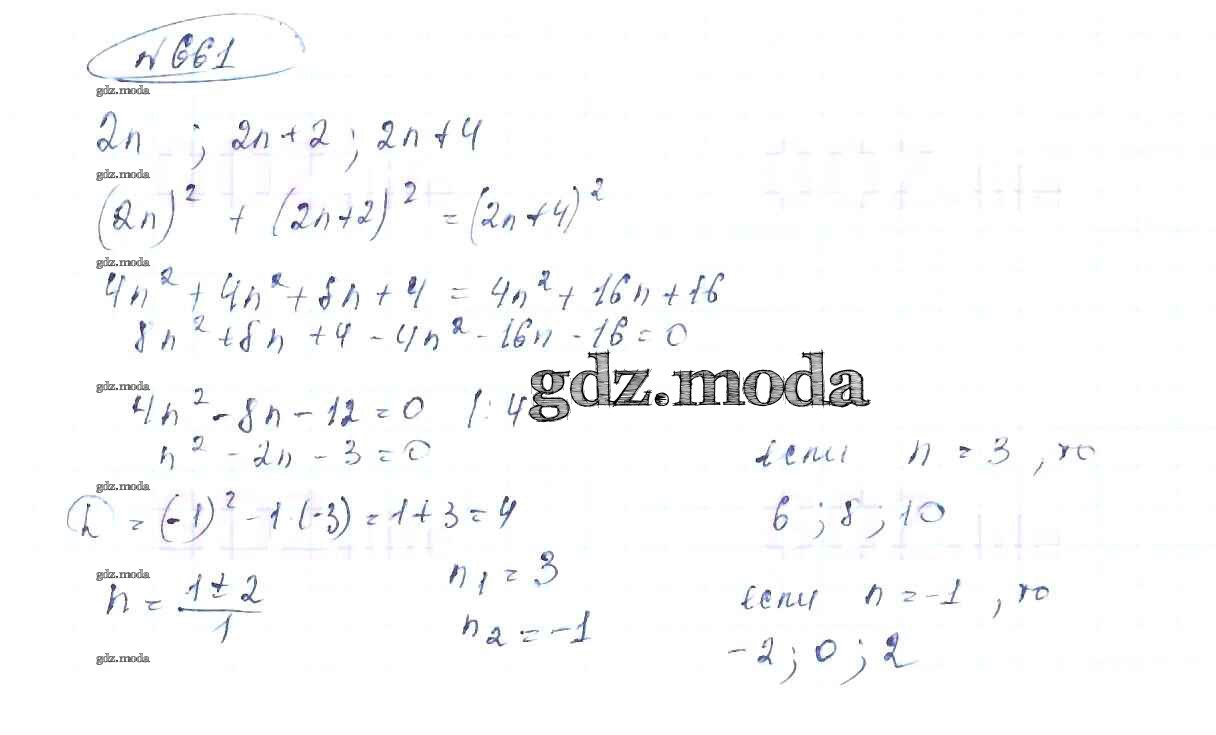 №661
gdz.moda
2n ; 2n+2 ; 2n+4
gdz.moda
(2n)² + (2n+2)² = (2n+4)²
gdz.moda
4n² + 4n² + 8n + 4 = 4n² + 16n + 16
8n² + 8n + 4 - 4n² - 16n - 16 = 0
gdz.moda
gdz.moda
4n² - 8n - 12 = 0 |: 4
n² - 2n - 3 = 0
gdz.moda
= (-1)² - 1·(-3) = 1 + 3 = 4
gdz.moda
n = (1 ± 2)/1
n₁ = 3
n₂ = -1
gdz.moda
если n = 3, то
6 ; 8 ; 10
если n = -1, то
-2 ; 0 ; 2